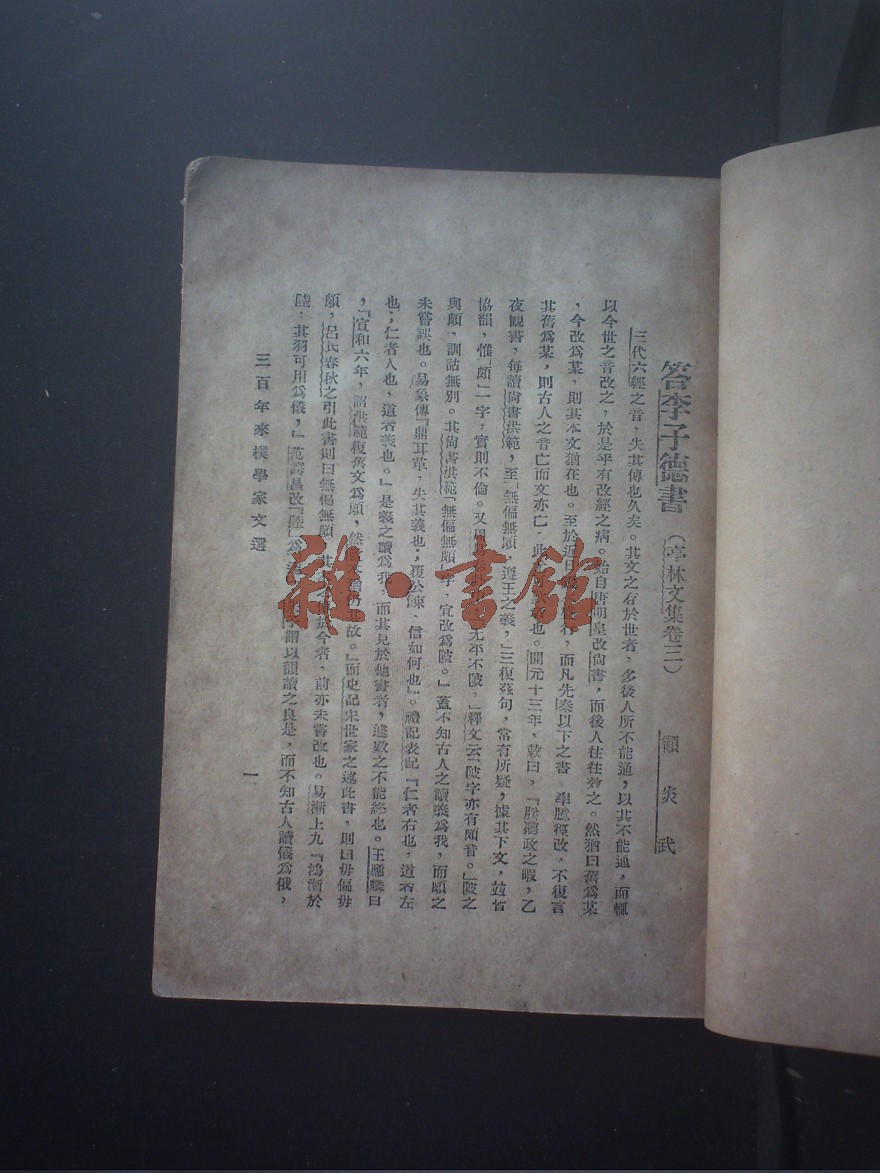 答李子德書
（亭林文集卷三）
顧炎武
三代六經之音，失其傳也久矣。其文之存於世者，多後人所不能通，以其不能通，而輒
以今世之音改之，於是乎有改經之病。始自唐明皇改尚書，而後人往往效之。然猶曰舊爲某
，今改爲某，則其本文猶在也。至於近日 行，而凡先秦以下之書 率臆徑改，不復言
其舊爲某，則古人之音亡而文亦亡，此 也。開元十三年，敕曰，『朕聽政之暇，乙
夜觀書，每讀尚書洪範，至「無偏無頗，遵王之義，」三復茲句，常有所疑，據其下文，並皆
協韻，惟「頗」一字，實則不倫。又周 无平不陂。」釋文云「陂字亦有頗音。」陂之
與頗，訓詁無別。其尚書洪範「無偏無頗」字，宜改爲陂。』蓋不知古人之讀義爲我，而頗之
未嘗誤也。易象傳『鼎耳革，失其義也；覆公餗，信如何也』。禮記表記『仁者右也，道者左
也；仁者人也，道者義也。』是義之讀爲我，而其見於他書者，遽數之不能終也。王應麟曰
，『宣和六年，詔洪範復舊文爲頗，然 故。』而史記宋世家之述此書，則曰毋偏毋
頗，呂氏春秋之引此書則曰無偏無頗，其 於今者，前亦未嘗改也。易漸上九『鴻漸於
陸，其羽可用爲儀，』范諤昌改『陸』爲 謂以韻讀之良是，而不知古人讀儀爲俄，
三百年來樸學家文選
一
雜·書館